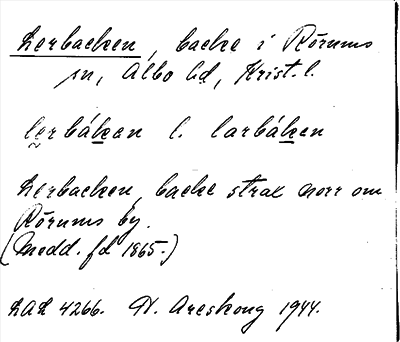 Lerbacken, backe i Rörums
sn, Albo hd, Krist. l.
lerbákan l. larbáken
Lerbacken, backe strax norr om
Rörums by.
(Medd. fd 1865.)
LAL 4266. H. Areskoug 1944.